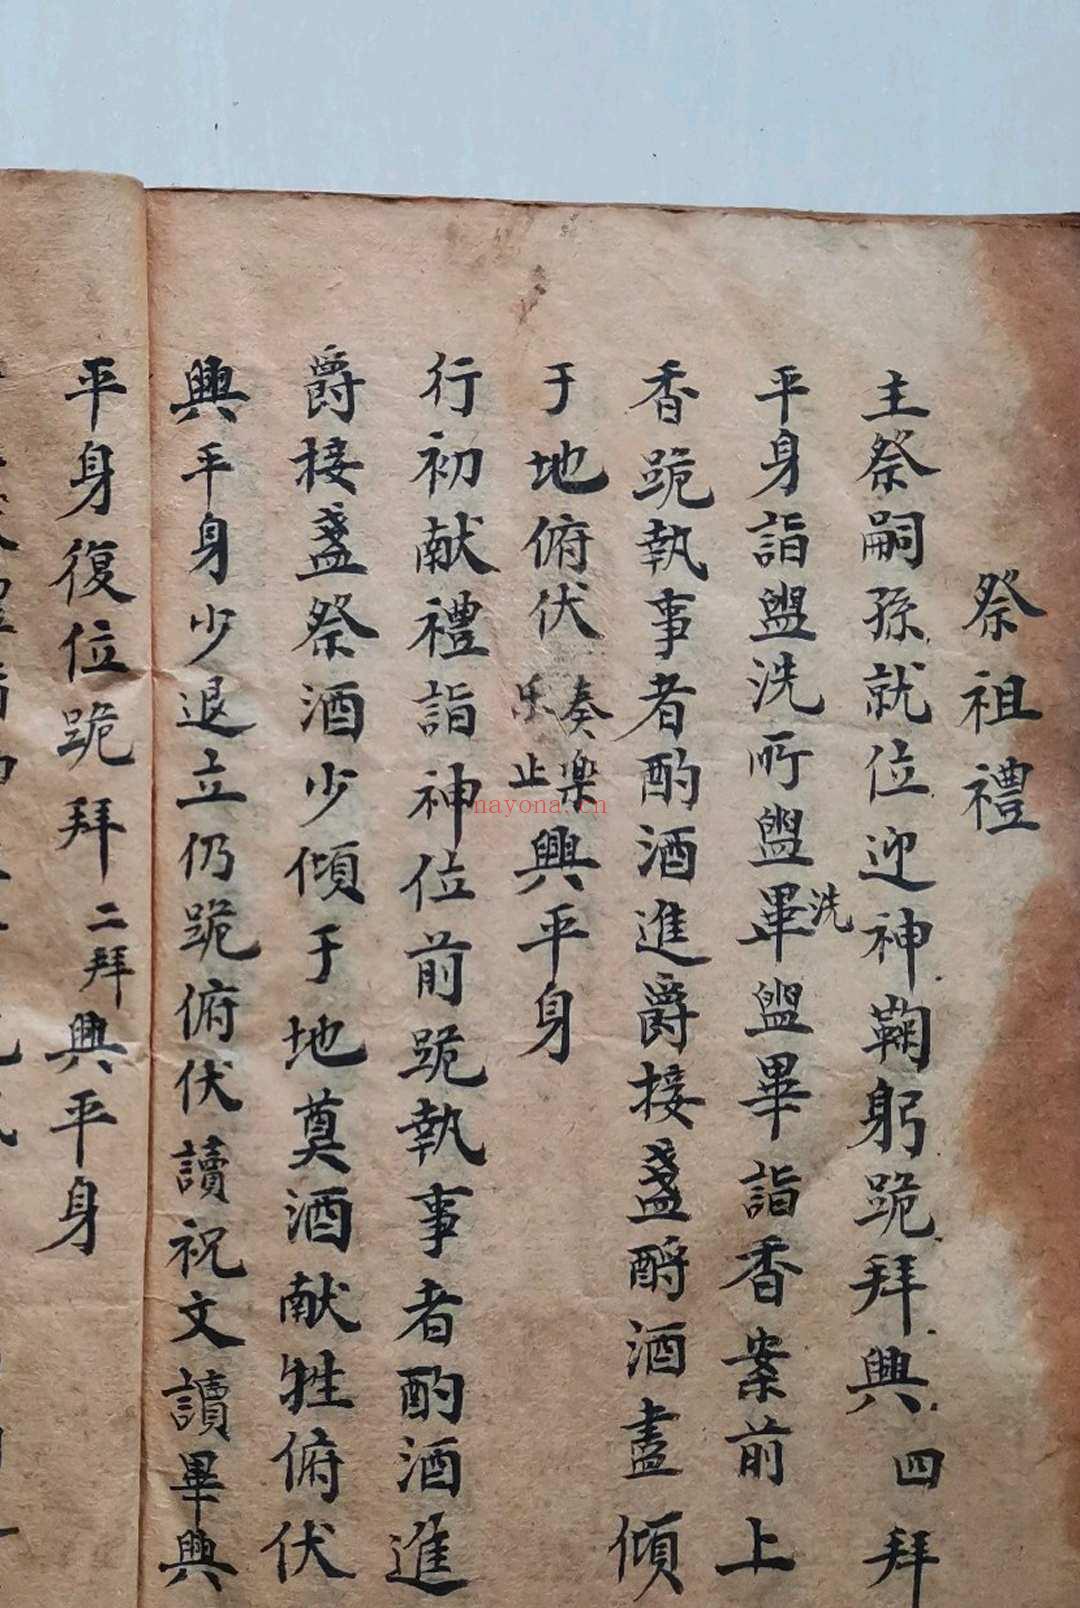 祭祖禮
主祭嗣孫就位迎神鞠躬跪拜興四拜
平身詣盥洗所盥畢洗盥畢詣香案前上
香跪執事者酌酒進爵接盞酹酒盡傾
于地俯伏奏樂乐止興平身
行初献禮詣神位前跪執事者酌酒進
爵接盞祭酒少傾于地奠酒献牲俯伏
興平身少退立仍跪俯伏讀祝文讀畢興
平身復位跪拜二拜興平身
nayona.cn